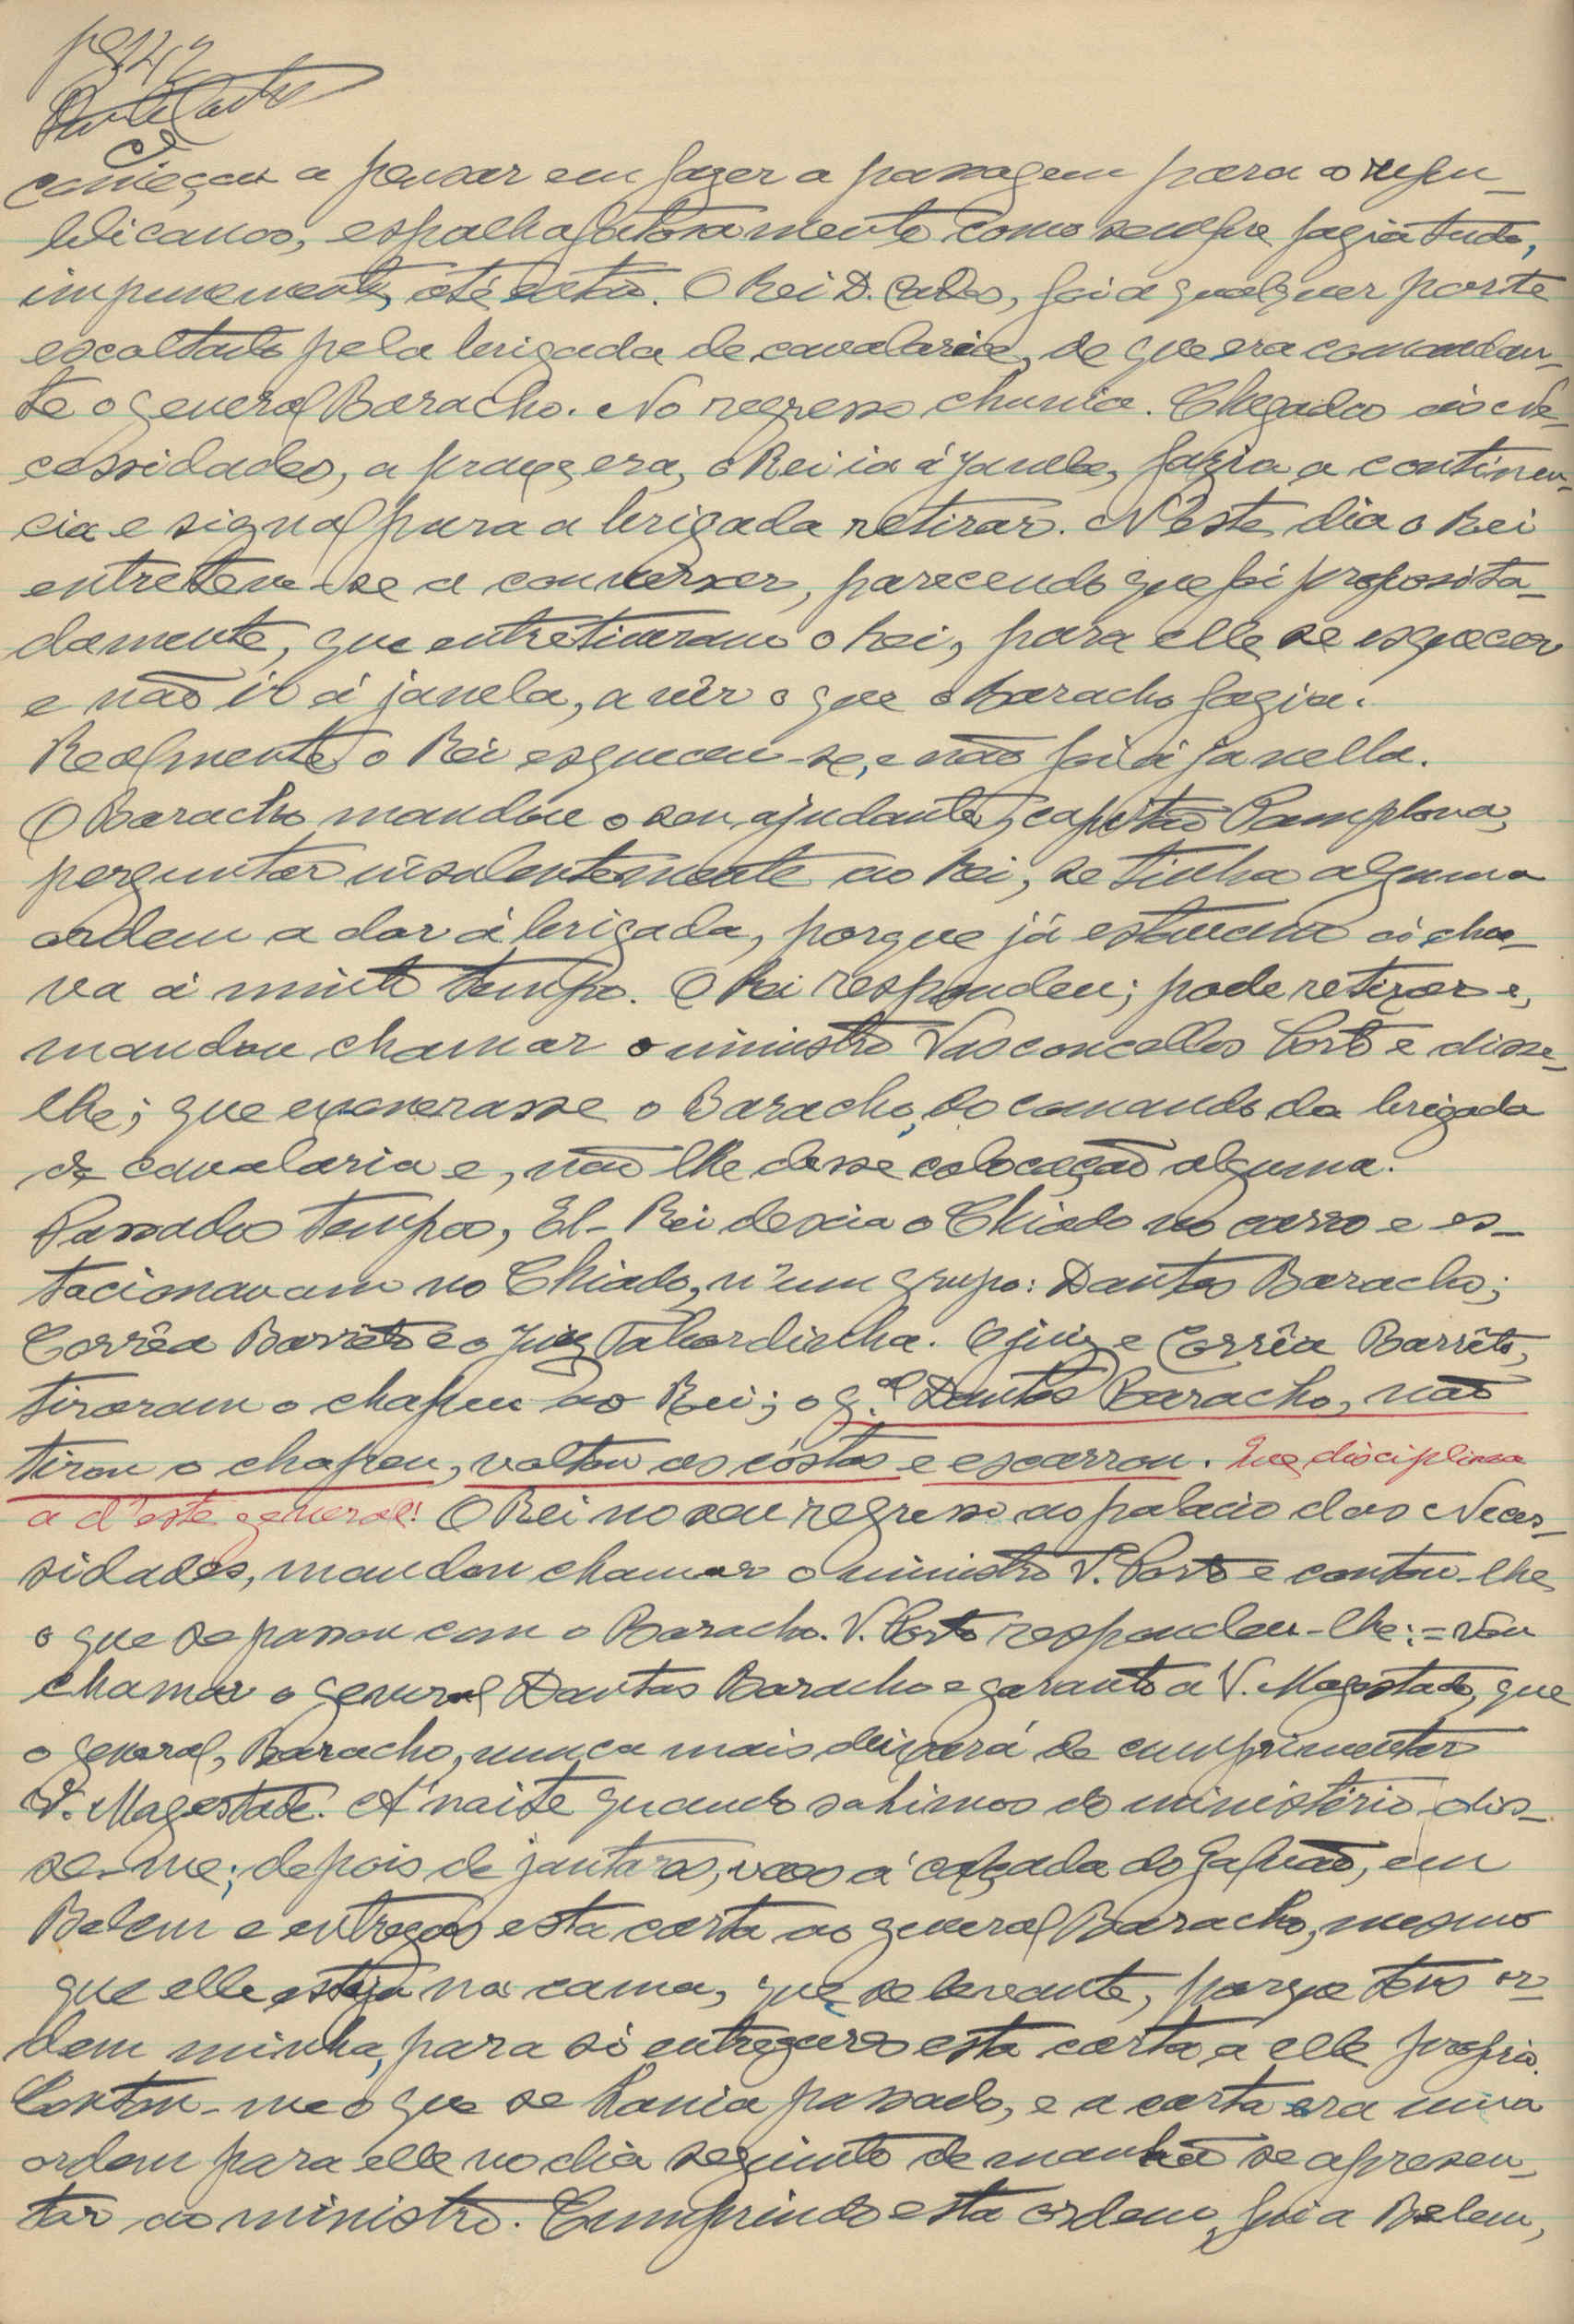 começou a pensar em fazer a passagem para o repu-
blicanos, espalhafatosamente como sempre fazia tudo,
impunemente, até esta. O Rei D. Carlos, foi a qualquer parte
escoltado pela brigada de cavalaria, de que era comandan-
te o general Baracho. No regresso chuvia. Chegados ás Ne-
cessidades, a praxe, era, o Rei ia á janela, fazia a continen-
cia e signal para a brigada retirar. N'êste dia o Rei
entreteve-se a conversar, parecendo que foi proposita-
damente, que entretiveram o Rei, para elle se esquecer
e não ir á janela, a vêr o que o Baracho fazia.
Realmente o Rei esqueceu-se, e não foi á janella.
O Baracho mandou o seu ajudante, capitão Pamplona,
perguntar insolentemente ao Rei, se tinha alguma
ordem a dar á brigada, porque já estavam á chu-
va á muito tempo. O Rei respondeu; pode retirar e,
mandou chamar o ministro Vasconcellos Porto e disse-
lhe; que exonerasse o Baracho, do comando da brigada
de cavalaria e, não lhe desse colocação alguma.
Passados tempos, El-Rei descia o Chiado no carro e es-
tacionavam no Chiado, n'um grupo: Dantas Baracho;
Corrêa Barrêto e o juiz Tabordinha. O juiz e Corrêa Barrêto,
tiraram o chapeu ao Rei; o g.al Dantas Baracho, não
tirou o chapeu, voltou as cóstas e escarrou. Que disciplina
a d'este general! O Rei no seu regresso ao palacio das Neces-
sidades, mandou chamar o ministro V. Porto e contou-lhe
o que se passou com o Baracho. V. Porto respondeu-lhe: = Vou
chamar o general Dantas Baracho e garanto a V. Magestade, que
o general, Baracho, nunca mais deixará de cumprimentar
V. Magestade. Á noite quando sahimos do ministério dis-
se-me; depois de jantares, vaes á calçada do Galvão, em
Belem e entregas esta carta ao general Baracho, mesmo
que elle esteja na cama, que se levante, porque tens or-
dem minha, para só entregares esta carta a elle proprio.
Contou-me o que se havia passado, e a carta era uma
ordem para elle no dia seguinte de manhã se apresen-
tar ao ministro. Cumprindo esta ordem, fui a Belem,